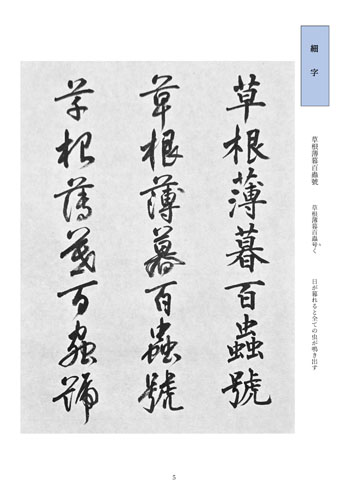 細字
草根薄暮百蟲號
草根薄暮百蟲号く
日が暮れると全ての虫が鳴き出す
草根薄暮百蟲號
草根薄暮百蟲號
草根薄暮百蟲號
5